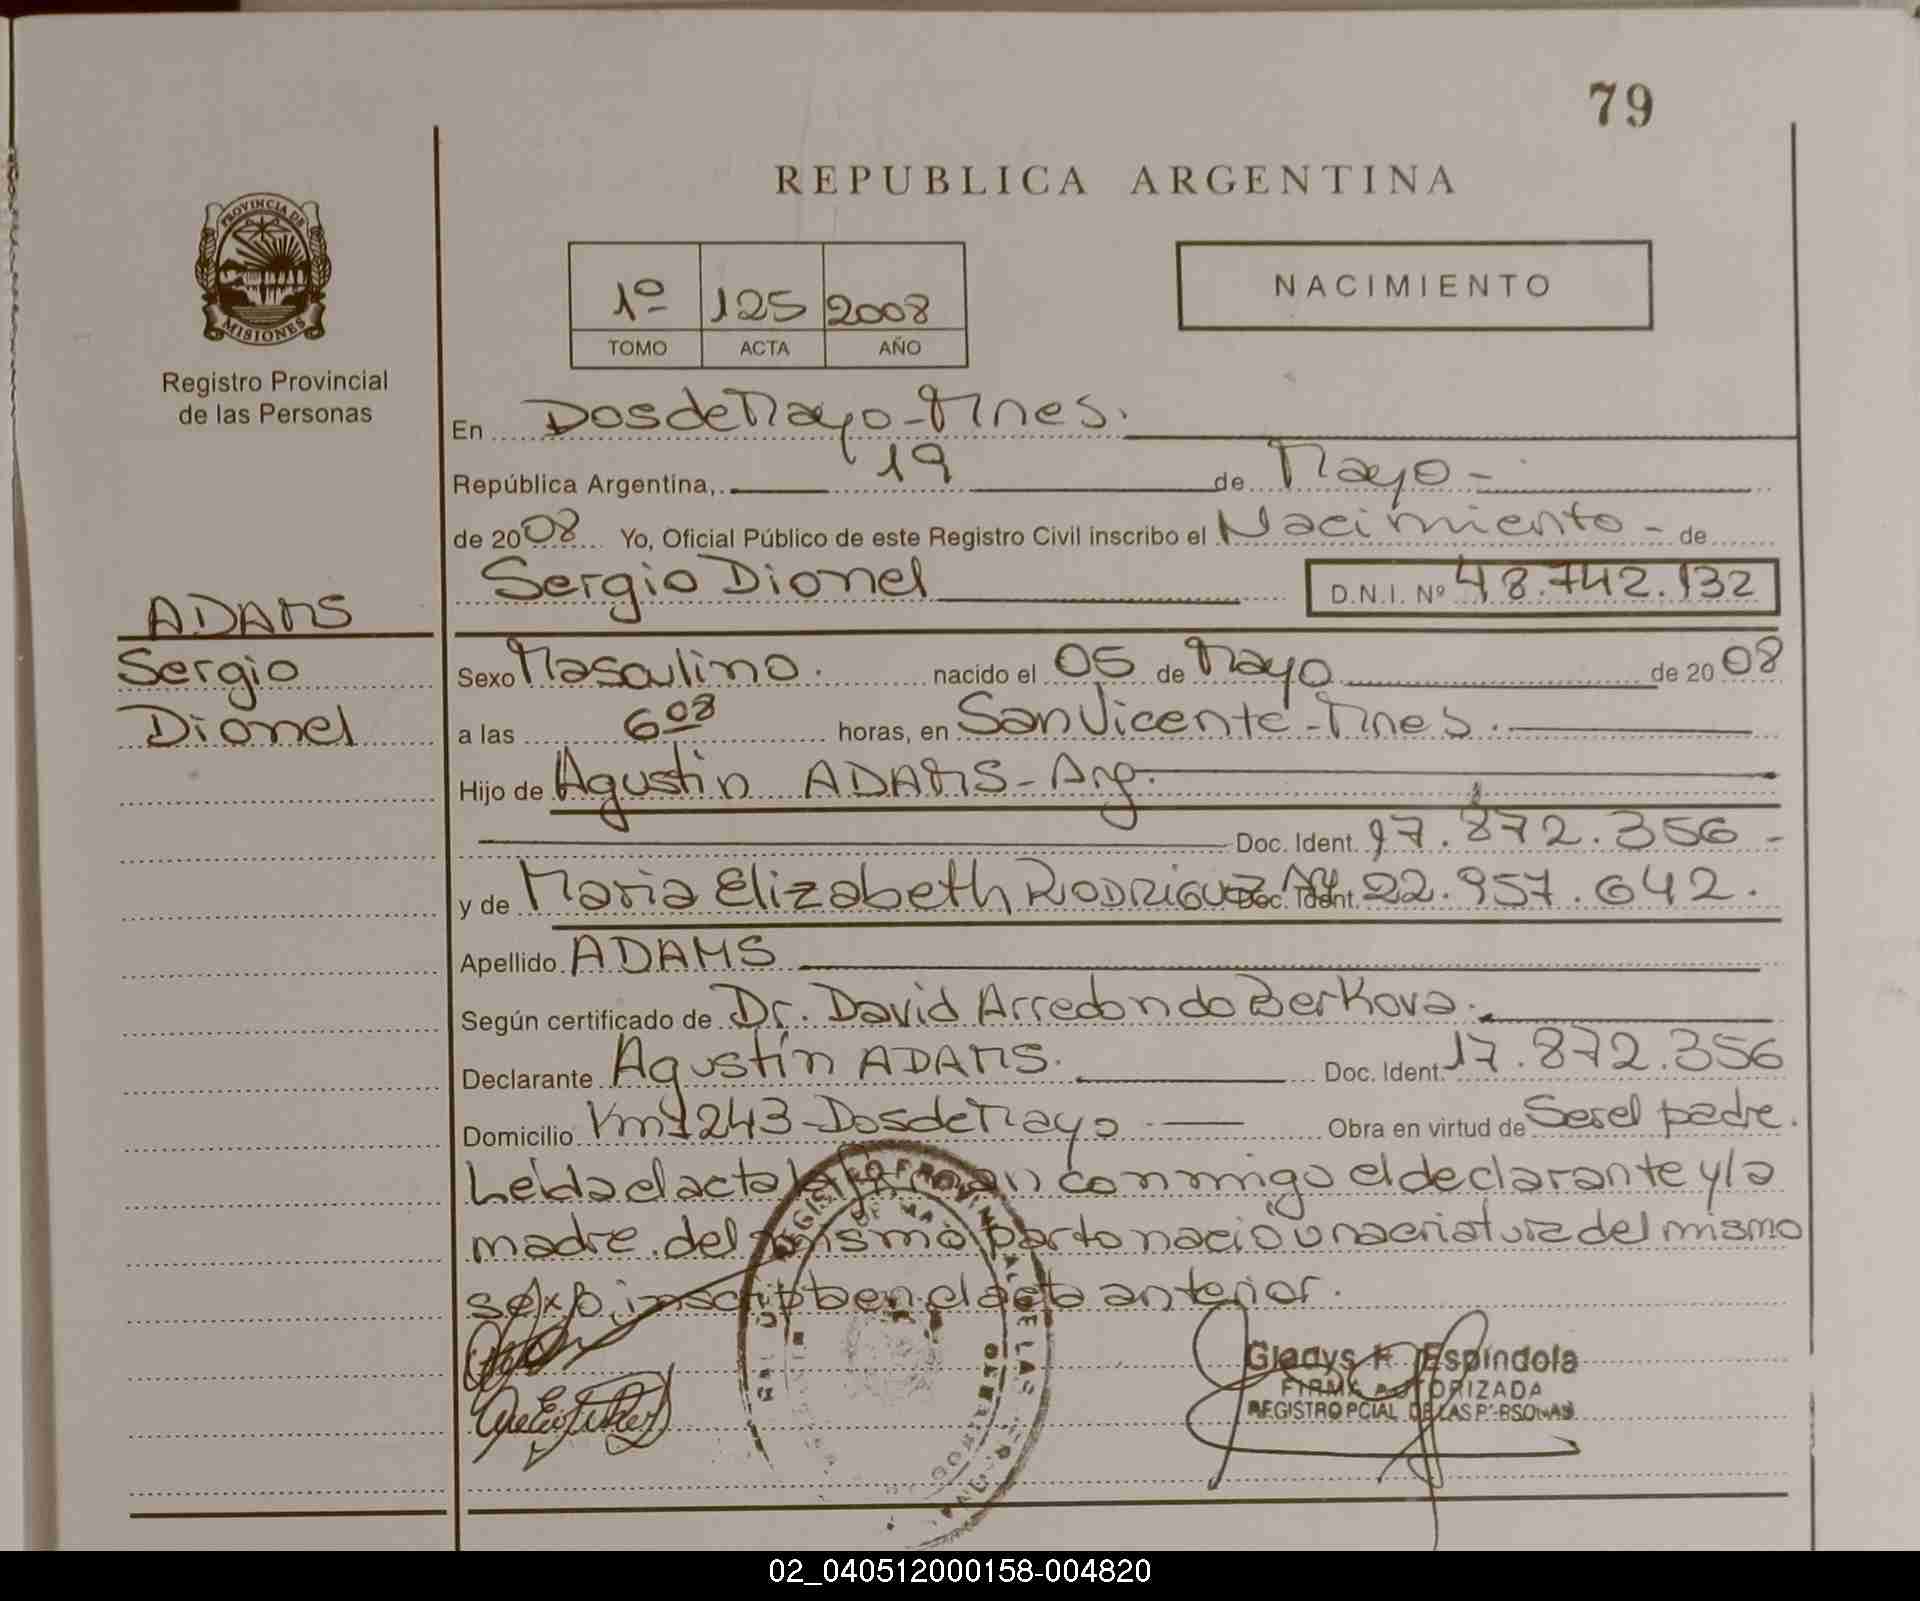 79
REPUBLICA ARGENTINA
PROVINCIA DE
MISIONES
Registro Provincial
de las Personas
1º 125 2008
TOMO ACTA AÑO
NACIMIENTO
En Dos de Mayo - Mnes.
República Argentina, 19 de Mayo -
de 2008 Yo, Oficial Público de este Registro Civil inscribo el Nacimiento - de
Sergio Dionel D.N.I. Nº 48.742.132
ADAMS
Sergio
Dionel
Sexo Masculino. nacido el 05 de Mayo de 2008
a las 6 08 horas, en San Vicente - Mnes.
Hijo de Agustin ADAMS - Arg.
Doc. Ident. 17.872.356 -
y de Maria Elizabeth RODRIGUEZ Arg Doc. Ident. 22.957.642.
Apellido ADAMS
Según certificado de Dr. David Arredondo Berkova.
Declarante Agustín ADAMS. Doc. Ident. 17.872.356
Domicilio Km 1243 - Dos de Mayo Obra en virtud de Ser el padre.
Leida el acta la firman conmigo el declarante y la
madre. del mismo parto nació una criatura del mismo
sexo inscripto en el acta anterior.
Gladys H. Espindola
FIRMA AUTORIZADA
REGISTRO PCIAL DE LAS PERSONAS
02_040512000158-004820